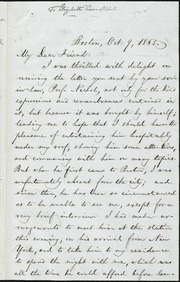 To Elizabeth Pease Nichol
Boston, Oct. 9, 1865.
My Dear Friend:
I was thrilled with delight on
receiving the letter you sent by your son-
in-law, Prof. Nichol, not only for the kind
expressions and remembrances contained in
it, but because it was brought by himself,
leading me to hope that I should have the
pleasure of entertaining him hospitably
under my roof, showing him some atten
and communing with him on many topics.
But when he first came to Boston, I was
unfortunately absent from the city; and
since then, he has been so circumstanced
as to be unable to see me, except for a
very brief interview. I had made ar-
rangements to meet him at the station
this evening, on his arrival from New
York, and to take him to my residence
to spend the night with me, which was
all the time he could afford before leav-